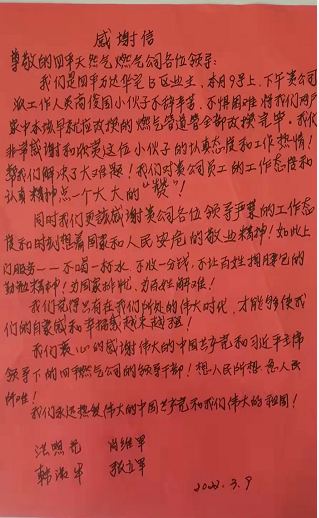 感谢信
尊敬的四平天然气燃气公司各位领导：
我们是四平万达华宅B区业主，本月9号上、下午贵公司
派工作人员高俊国小伙子不辞辛苦，不惧困难将我们两户
家中本该早就应改换的燃气管道管全部改换完毕，我们
非常感谢和欣赏这位小伙子的认真态度和工作热情！
帮我们解决了大难题！我们对贵公司员工的工作态度和
认真精神点一个大大的“赞”！
同时我们更该感谢贵公司各位领导严谨的工作态
度和时刻想着国家和人民安危的敬业精神！如此上
门服务——不喝一杯水，不收一分钱，不让百姓掏腰包的
勤勉精神！为国家排忧，为百姓解难！
我们觉得只有在我们所处的伟大时代，才能够使我
们的自豪感和幸福感越来越强！
我们衷心的感谢伟大的中国共产党和习近平主席
领导下的四平燃气公司的领导干部！想人民所想，急人民
所难！
我们永远热爱伟大的中国共产党和我们伟大的祖国！
洪照光 肖维军
韩淑军 张立军
2022.3.9